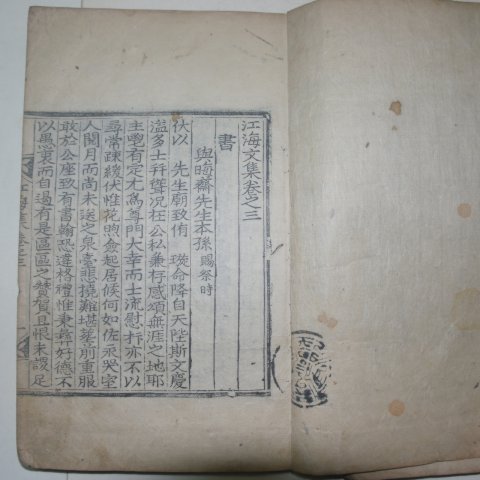 江海文集卷之三
書
與晦齋先生本孫 賜祭時
伏以 先生廟致侑 璇命降自天陛斯文慶
溢多士拜聳况在公私兼存感頌無涯之地耶
主鬯有定尤爲尊門大幸而士流慰抃亦不以
尋常疎綬伏惟花煦僉起居候何如佐承哭室
人閱月而尚未送之泉臺悲撓難堪葬前重服
敢於公座致有書翰恐違格禮惟秉彛好德不
以愚衷而自過有是區區之贊賀且恨未設足
江海集 卷之三